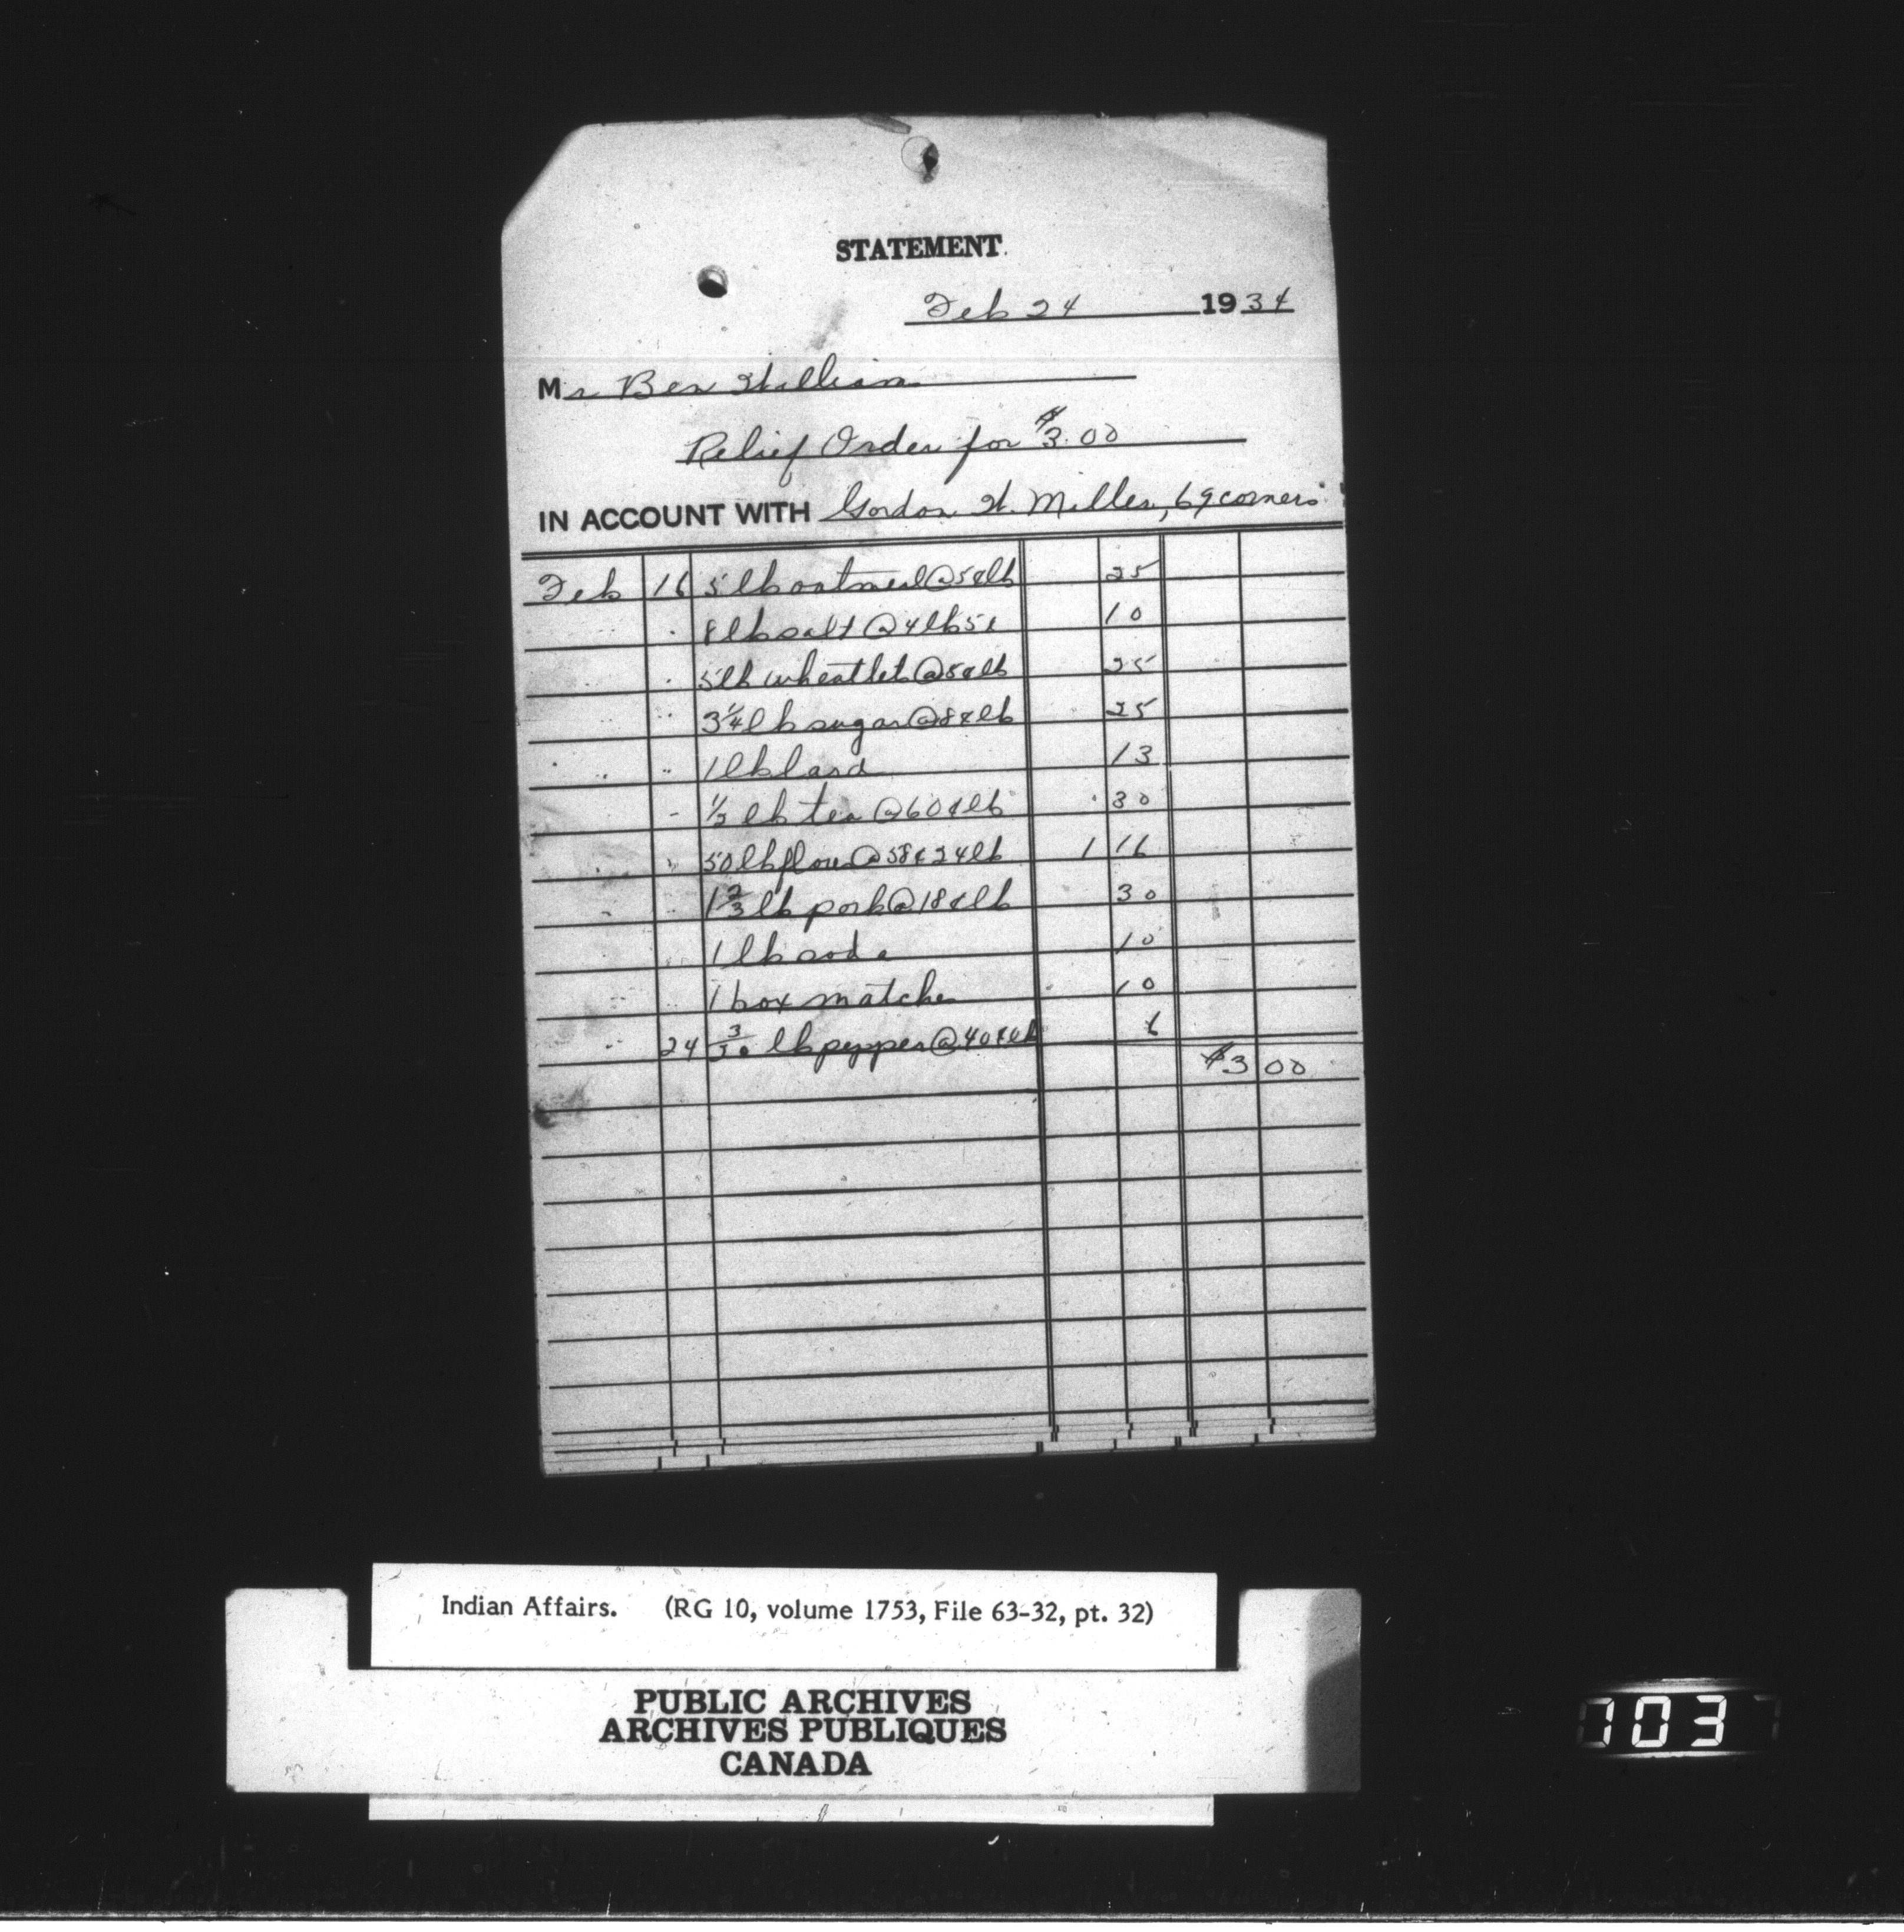 STATEMENT.
Feb 24 1934
Mr Ben William
Relief Order for $3.00
IN ACCOUNT WITH Gordon W. Miller, 69 corners
Feb 16 5 lb oatmeal @ 5¢ lb 25
8 lb salt @ 4 lb 5¢ 10
5 lb wheatlets @ 5¢ lb 25
3 1/4 lb sugar @ 8¢ lb 25
1 lb lard 13
1/2 lb tea @ 60¢ lb 30
50 lb flour @ 58¢ 24 lb 1 16
1 2/3 lb pork @ 18¢ lb 30
1 lb soda 10
1 box matches 10
24 lb pepper @ 40¢ lb 6
$3 00
Indian Affairs. (RG 10, volume 1753, File 63-32, pt. 32)
PUBLIC ARCHIVES
ARCHIVES PUBLIQUES
CANADA
703